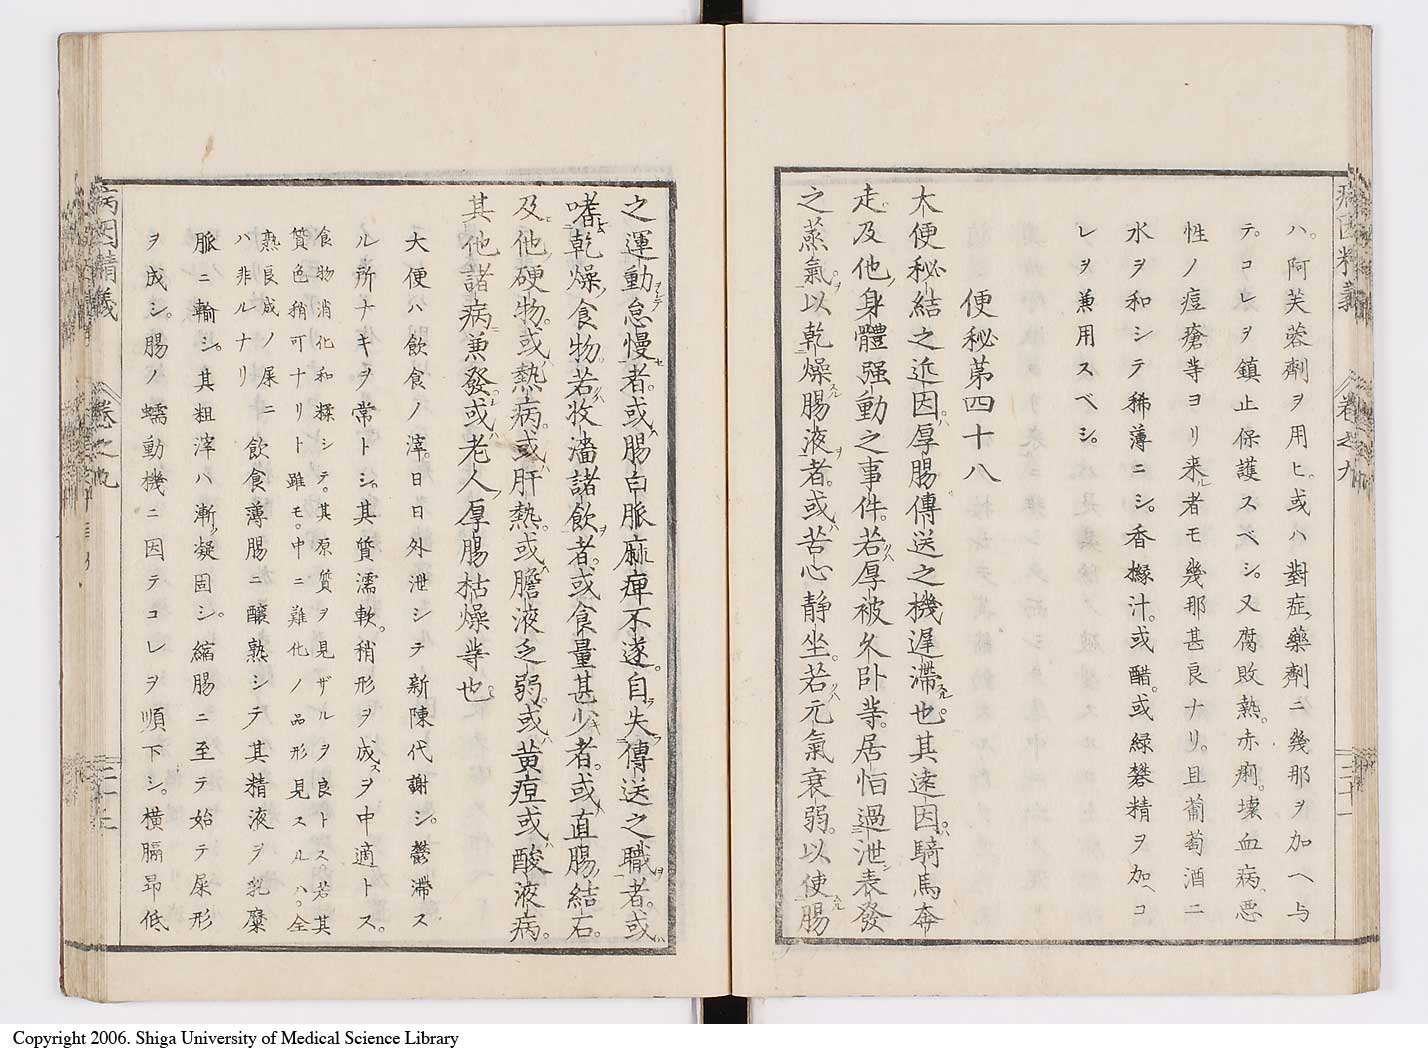 病因精義
卷之九
三十一
ハ。阿芙蓉劑ヲ用ヒ。或ハ對症ノ藥劑ニ幾那ヲ加ヘ与
テ。コレヲ鎮止保護スベシ。又腐敗熱。赤痢。壞血病。悪
性ノ痘瘡等ヨリ来ル者モ幾那甚良ナリ。且葡萄酒ニ
水ヲ和シテ稀薄ニシ。香櫞汁。或醋。或緑礬精ヲ加ヘコ
レヲ兼用スベシ。
便秘第四十八
大便秘結之近因ハ。厚腸傳送之機遅滞也。其遠因ハ。騎馬奔
走及他ノ身體强動之事件。若クハ厚被久卧等。居恒過泄表發
之蒸氣ヲ以乾燥腸液ヲ者。或ハ苦心静坐。若クハ元氣衰弱。以使腸
之運動怠慢者。或ハ腸白脈麻痺不遂。自失傳送之職ヲ者。或ハ
嗜乾燥ノ食物。若クハ收濇諸飲ヲ者。或ハ食量甚少キ者。或ハ直腸ノ結石。
及他硬物。或ハ熱病。或ハ肝熱。或ハ膽液乏弱。或ハ黄疸或ハ酸液病。
其他諸病兼發或ハ老人ノ厚腸枯燥等也
大便ハ飲食ノ滓。日日外泄シテ新陳代謝シ。鬱滞ス
ル所ナキヲ常トシ。其質濡軟。稍形ヲ成スヲ中適トス。
食物消化和釋シテ。其原質ヲ見ザルヲ良トス若其
質色稍可ナリト雖モ。中ニ難化ノ品形見スルハ。全
熟良成ノ屎ニ
ハ非ルナリ
飲食薄腸ニ釀熟シテ其精液ヲ乳糜
脈ニ輸シ。其粗滓ハ漸ク凝固シ。縮腸ニ至テ始テ屎形
ヲ成シ。腸ノ蠕動機ニ因テコレヲ順下シ。横膈昂低
病因精義
卷之九
Copyright 2006. Shiga University of Medical Science Library